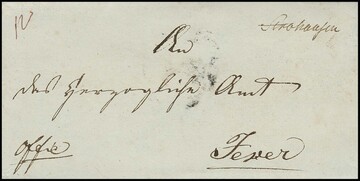 Strohausen
An
das Herzogliche Amt
Jever